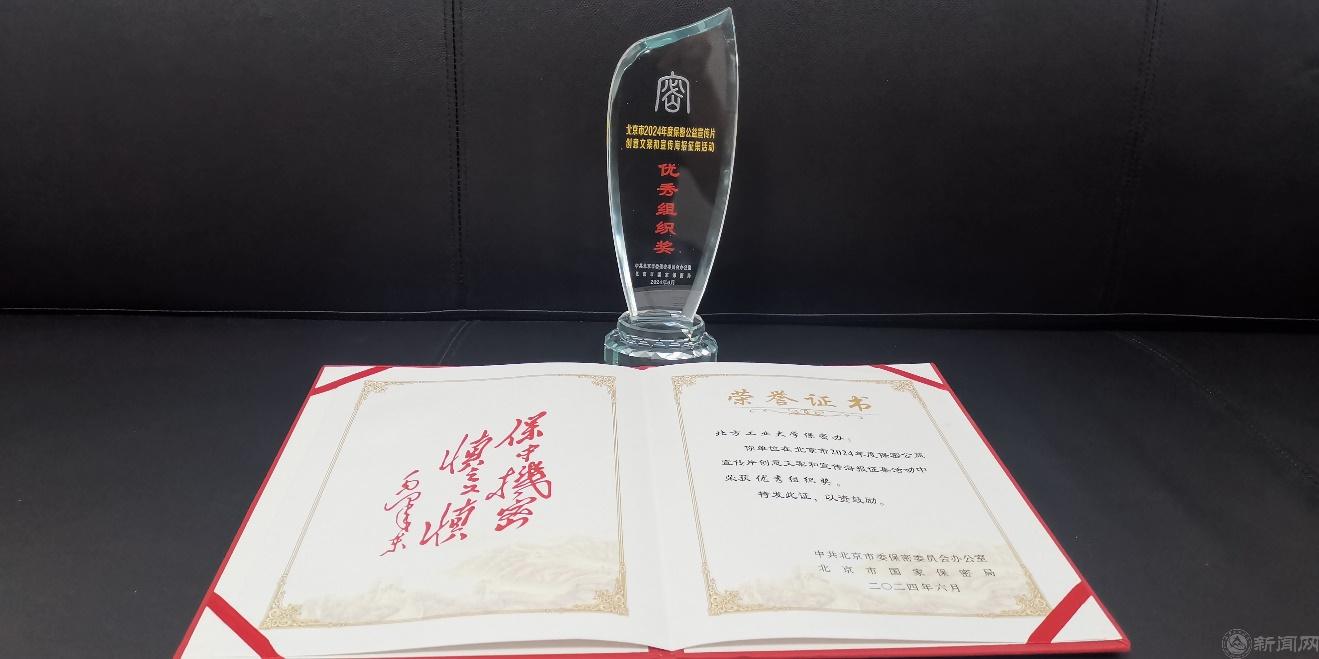 密
北京市2024年度保密公益宣传片
创意文案和宣传海报征集活动
优秀组织奖
中共北京市委保密委员会办公室
北京市国家保密局
2024年6月
保守機密
慎之又慎
毛泽东
荣誉证书
北方工业大学保密办：
你单位在北京市2024年度保密公益
宣传片创意文案和宣传海报征集活动中
荣获优秀组织奖。
特发此证，以资鼓励。
中共北京市委保密委员会办公室
北京市国家保密局
二〇二四年六月
新闻网